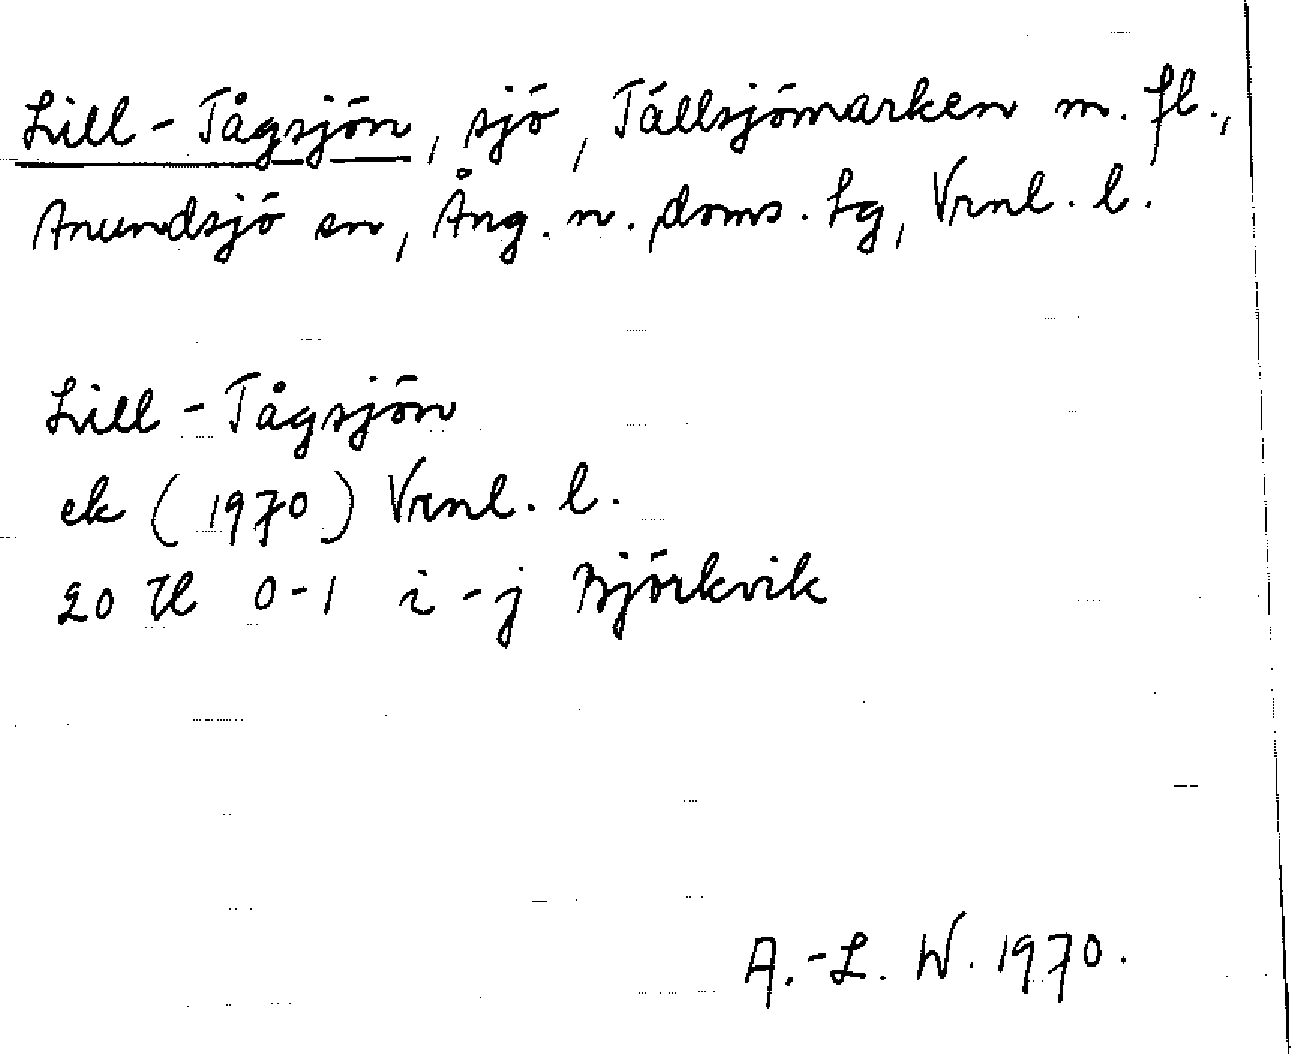 Lill-Tågsjön, sjö, Tällsjömarken m. fl.,
Anundsjö sn, Ång. n. doms. tg, Vrnl. l.
Lill-Tågsjön
ek (1970) Vrnl. l.
20 H 0-1 i-j Björkvik
A.-L. W. 1970.